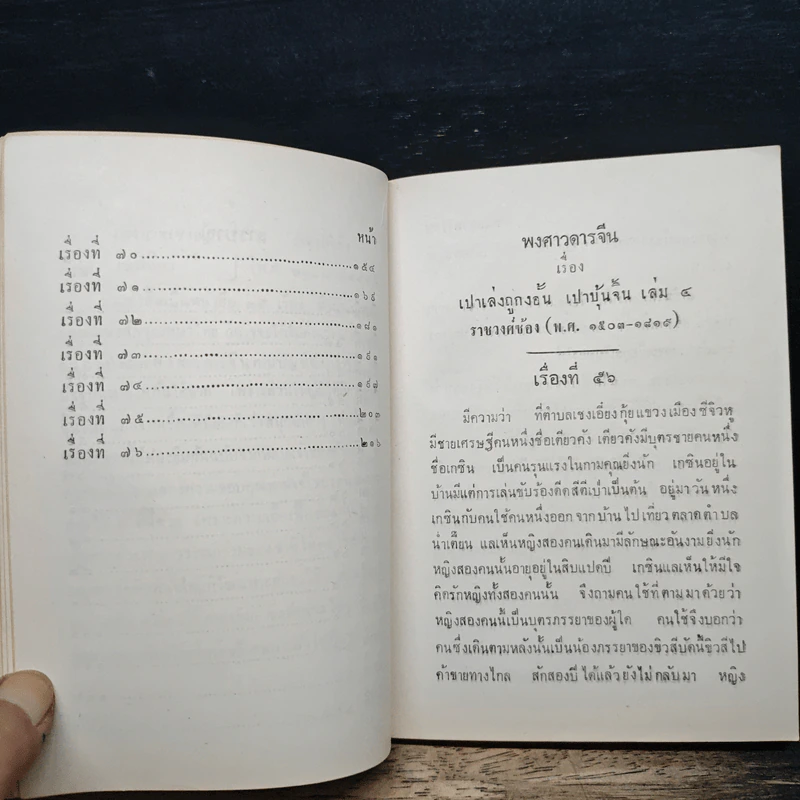 หน้า
เรื่องที่ ๗๐ ๑๕๔
เรื่องที่ ๗๑ ๑๖๙
เรื่องที่ ๗๒ ๑๘๑
เรื่องที่ ๗๓ ๑๙๑
เรื่องที่ ๗๔ ๑๙๘
เรื่องที่ ๗๕ ๒๐๓
เรื่องที่ ๗๖ ๒๑๖
พงศาวดารจีน
เรื่อง
เปาเล่งถูกงอั้น เปาบุ้นจิ้น เล่ม ๔
ราชวงศ์ซ้อง (พ.ศ. ๑๕๐๓-๑๘๑๙)
เรื่องที่ ๕๖
มีความว่า ที่ตำบลเซงเอี๋ยงกุ้ยแขวงเมืองซีจิวหู
มีชายเศรษฐีคนหนึ่งชื่อเตียวคัง เตียวคังมีบุตรชายคนหนึ่ง
ชื่อเกซิน เป็นคนรุนแรงในกามคุณยิ่งนัก เกซินอยู่ใน
บ้านมีแต่การเล่นขับร้องดีดสีตีเป่าเป็นต้น อยู่มาวันหนึ่ง
เกซินกับคนใช้คนหนึ่งออกจากบ้านไปเที่ยวตลาดตำบล
น่ำเตียน แลเห็นหญิงสองคนเดินมามีลักษณะอันงามยิ่งนัก
หญิงสองคนนั้นอายุอยู่ในสิบแปดปี เกซินแลเห็นให้มีใจ
คิดรักหญิงทั้งสองคนนั้น จึงถามคนใช้ที่ตามมาด้วยว่า
หญิงสองคนนี้เป็นบุตรภรรยาของผู้ใด คนใช้จึงบอกว่า
คนซึ่งเดินตามหลังนั้นเป็นน้องภรรยาของชิวสีบัดนี้ชิวสีไป
ค้าขายทางไกล สักสองปีได้แล้วยังไม่กลับมา หญิง